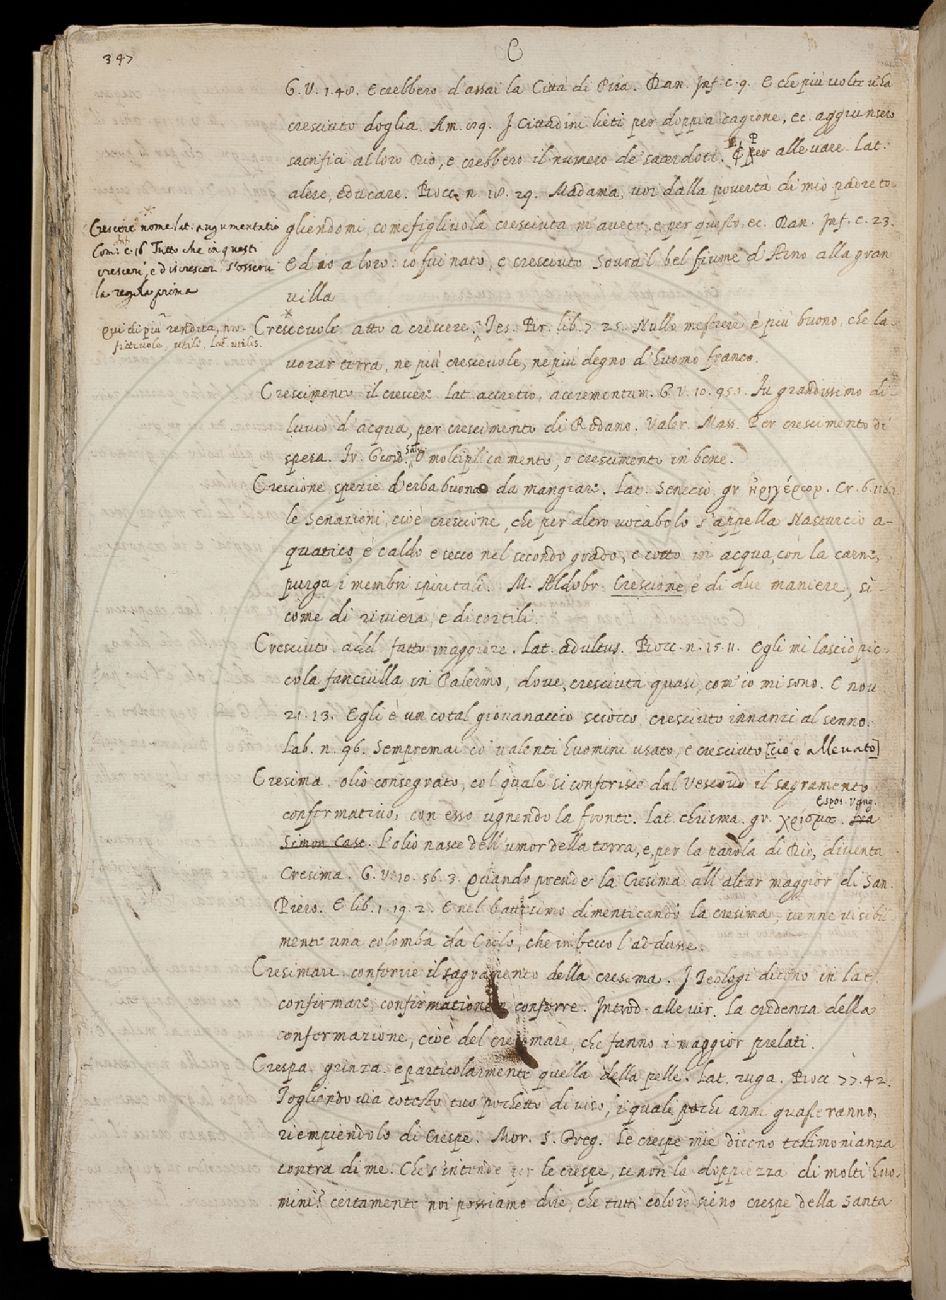 347
C
G. V. 1. 40. e crebbero d'assai la Città di Pisa. Dan. Inf. c. 9. E che più volte v'ha
cresciuto doglia. Am. 29. I Cittadini lieti per doppia cagione, ec. aggiunsero
sacrifici al loro Dio, e crebbero il numero de' sacerdoti. Per allevare. lat.
alere, educare. Bocc. n. 18. 29. Madama, voi dalla povertà di mio padre to-
gliendomi, come figliuola cresciuta m'avete, e per questo, ec. Dan. Inf. c. 23.
Ed io a loro: io fui nato, e cresciuto Sovra'l bel fiume d'Arno alla gran
villa
Crescere nome lat. augumentatio
Com. c. 16 Tutto che in questi
cresceri, e discresceri s'osservi
la regola prima
Crescevole. atto a crescere. Tes. Br. lib. 7. 25. Nullo mestiere è più buono, che la-
vorar terra, ne più crescevole, ne più degno d'huomo franco.
qui di più rendita, pro-
fittevole, utile. lat. utilis.
Crescimento. il crescere. lat. accretio, accrementum. G. V. 10. 95. 1. Fu grandissimo di-
luvio d'acqua, per crescimento di Rodano. Valer. Mass. Per crescimento di
spesa. Fr. Giord. Salv. O moltiplicamento, o crescimento in bene.
Crescione. spezie d'erba buona da mangiare. lat. Senecio, gr. ἠριγέρων. Cr. 6.
le Senazioni, cioè crescione, che per altro vocabolo s'appella Nasturcio a-
quatico, è caldo e secco nel secondo grado, e cotto in acqua, con la carne,
purga i membri spiritali. M. Aldobr. Crescione è di due maniere, sì
come di riviera, e di cortili.
Cresciuto. add. fatto maggiore. Lat. adultus. Bocc. n. 15. 11. Egli mi lasciò pic-
cola fanciulla in Palermo, dove, cresciuta quasi, com'io mi sono. E nov.
21. 13. Egli è un cotal giovanaccio sciocco, cresciuto innanzi al senno.
Lab. n. 96. Sempremai co' valenti huomini usato, e cresciuto [cio è allevato]
Cresima. olio consegrato, col quale si conferisce dal Vescovo il sagramento
confermativo, con esso ugnendo la fronte. Lat. chrisma. gr. χρίσμα. Espos. Vang.
Simon Casc. L'olio nasce dell'umor della terra, e, per la parola di Dio, diventa
Cresima. G. V. 10. 56. 3. Quando prende la Cresima all'altar maggior di San
Piero. E lib. 1. 19. 2. E nel battesimo dimenticando la cresima, venne visibil-
mente una colomba da Cielo, che in becco l'addusse.
Cresimare. conferire il sagramento della cresima. I Teologi dicono in lat.
confirmare, confirmationem conferre. Introd. alle vir. la credenza della
confermazione, cioè del cresimare, che fanno i maggior prelati.
Crespa. grinza. e particolarmente quella della pelle. Lat. ruga. Bocc. 77. 42.
Togliendo via cotesto tuo pochetto di viso, il quale pochi anni guasteranno,
riempiendolo di Crespe. Mor. S. Greg. Le crespe mie dicono testimonianza
contra di me. Che s'intende per le crespe, se non la doppiezza di molti huo-
mini? certamente noi possiamo dire, che tutti coloro sieno crespe della Santa